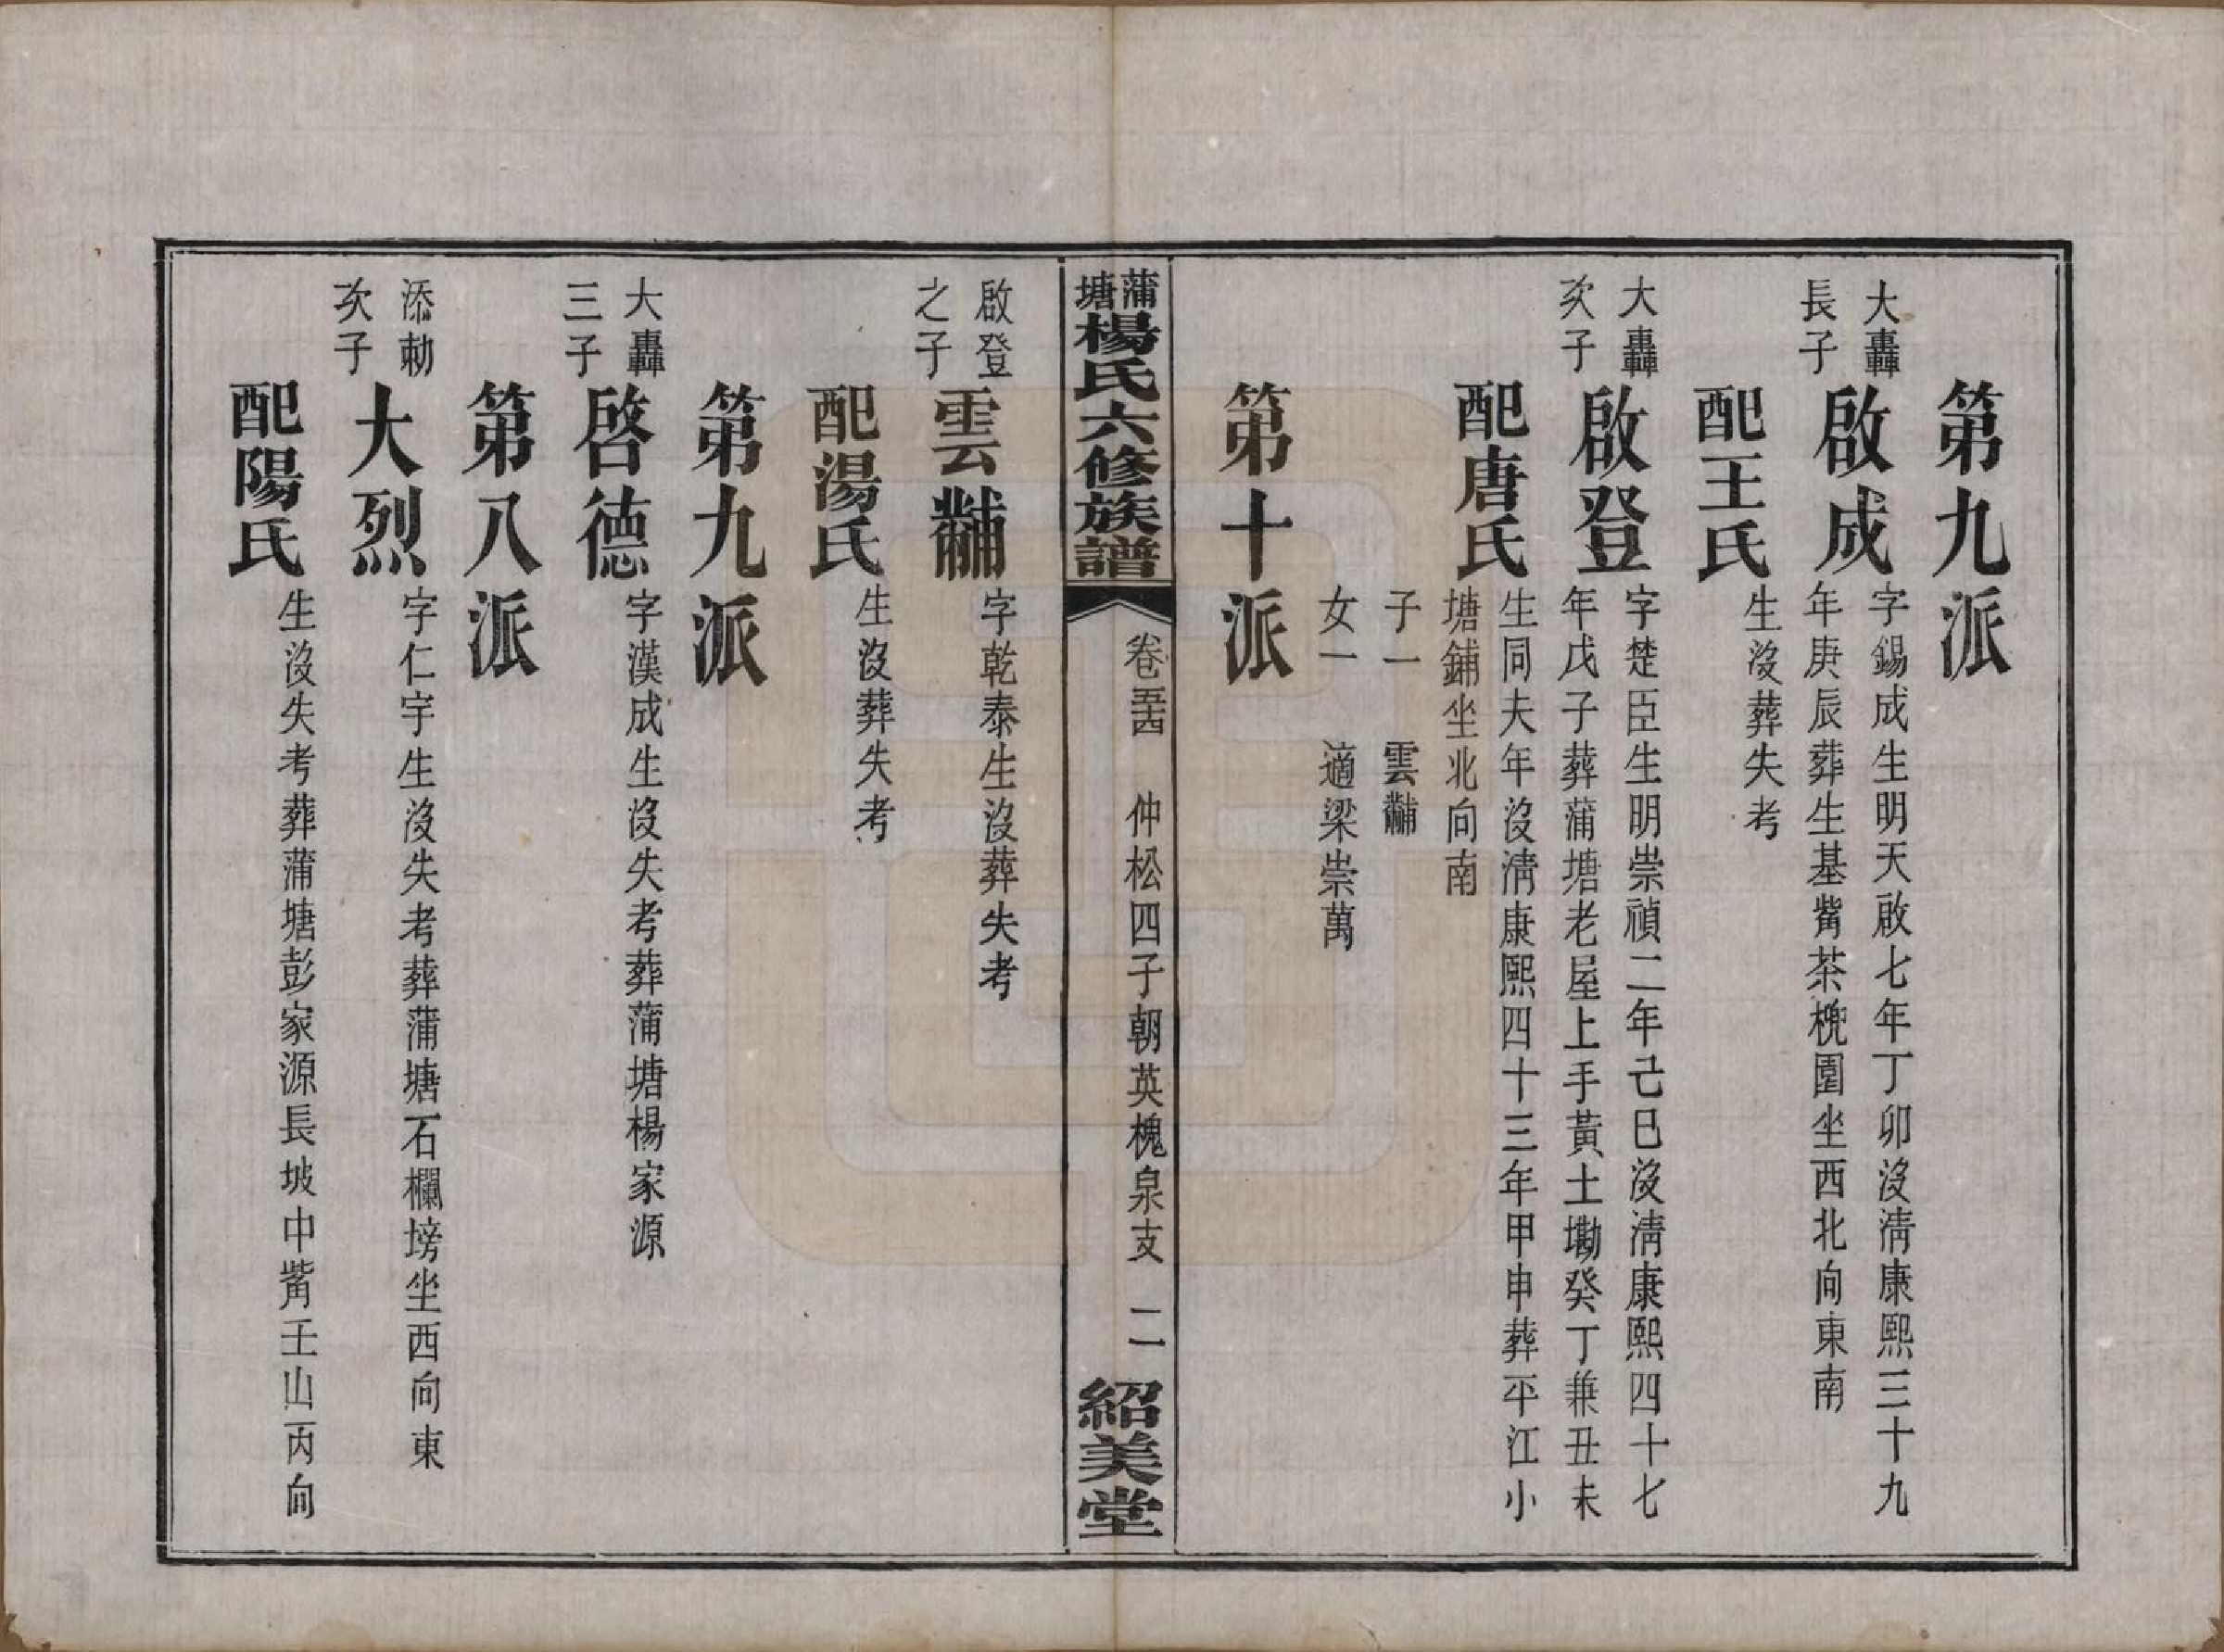 第九派
大轟長子
啟成
字錫成生明天啟七年丁卯沒清康熙三十九
年庚辰葬生基觜茶㮈園坐西北向東南
配王氏
生沒葬失考
大轟次子
啟登
字楚臣生明崇禎二年己巳沒清康熙四十七
年戊子葬蒲塘老屋上手黃土墈癸丁兼丑未
配唐氏
生同夫年沒清康熙四十三年甲申葬平江小
塘鋪坐北向南
子一 雲黼
女一 適梁崇萬
第十派
蒲塘楊氏六修族譜
卷五四 仲松四子朝英槐泉支 二
紹美堂
啟登之子
雲黼
字乾泰生沒葬失考
配湯氏
生沒葬失考
第九派
大轟三子
啓德
字漢成生沒失考葬蒲塘楊家源
第八派
添勑次子
大烈
字仁宇生沒失考葬蒲塘石欄塝坐西向東
配陽氏
生沒失考葬蒲塘彭家源長坡中觜壬山丙向